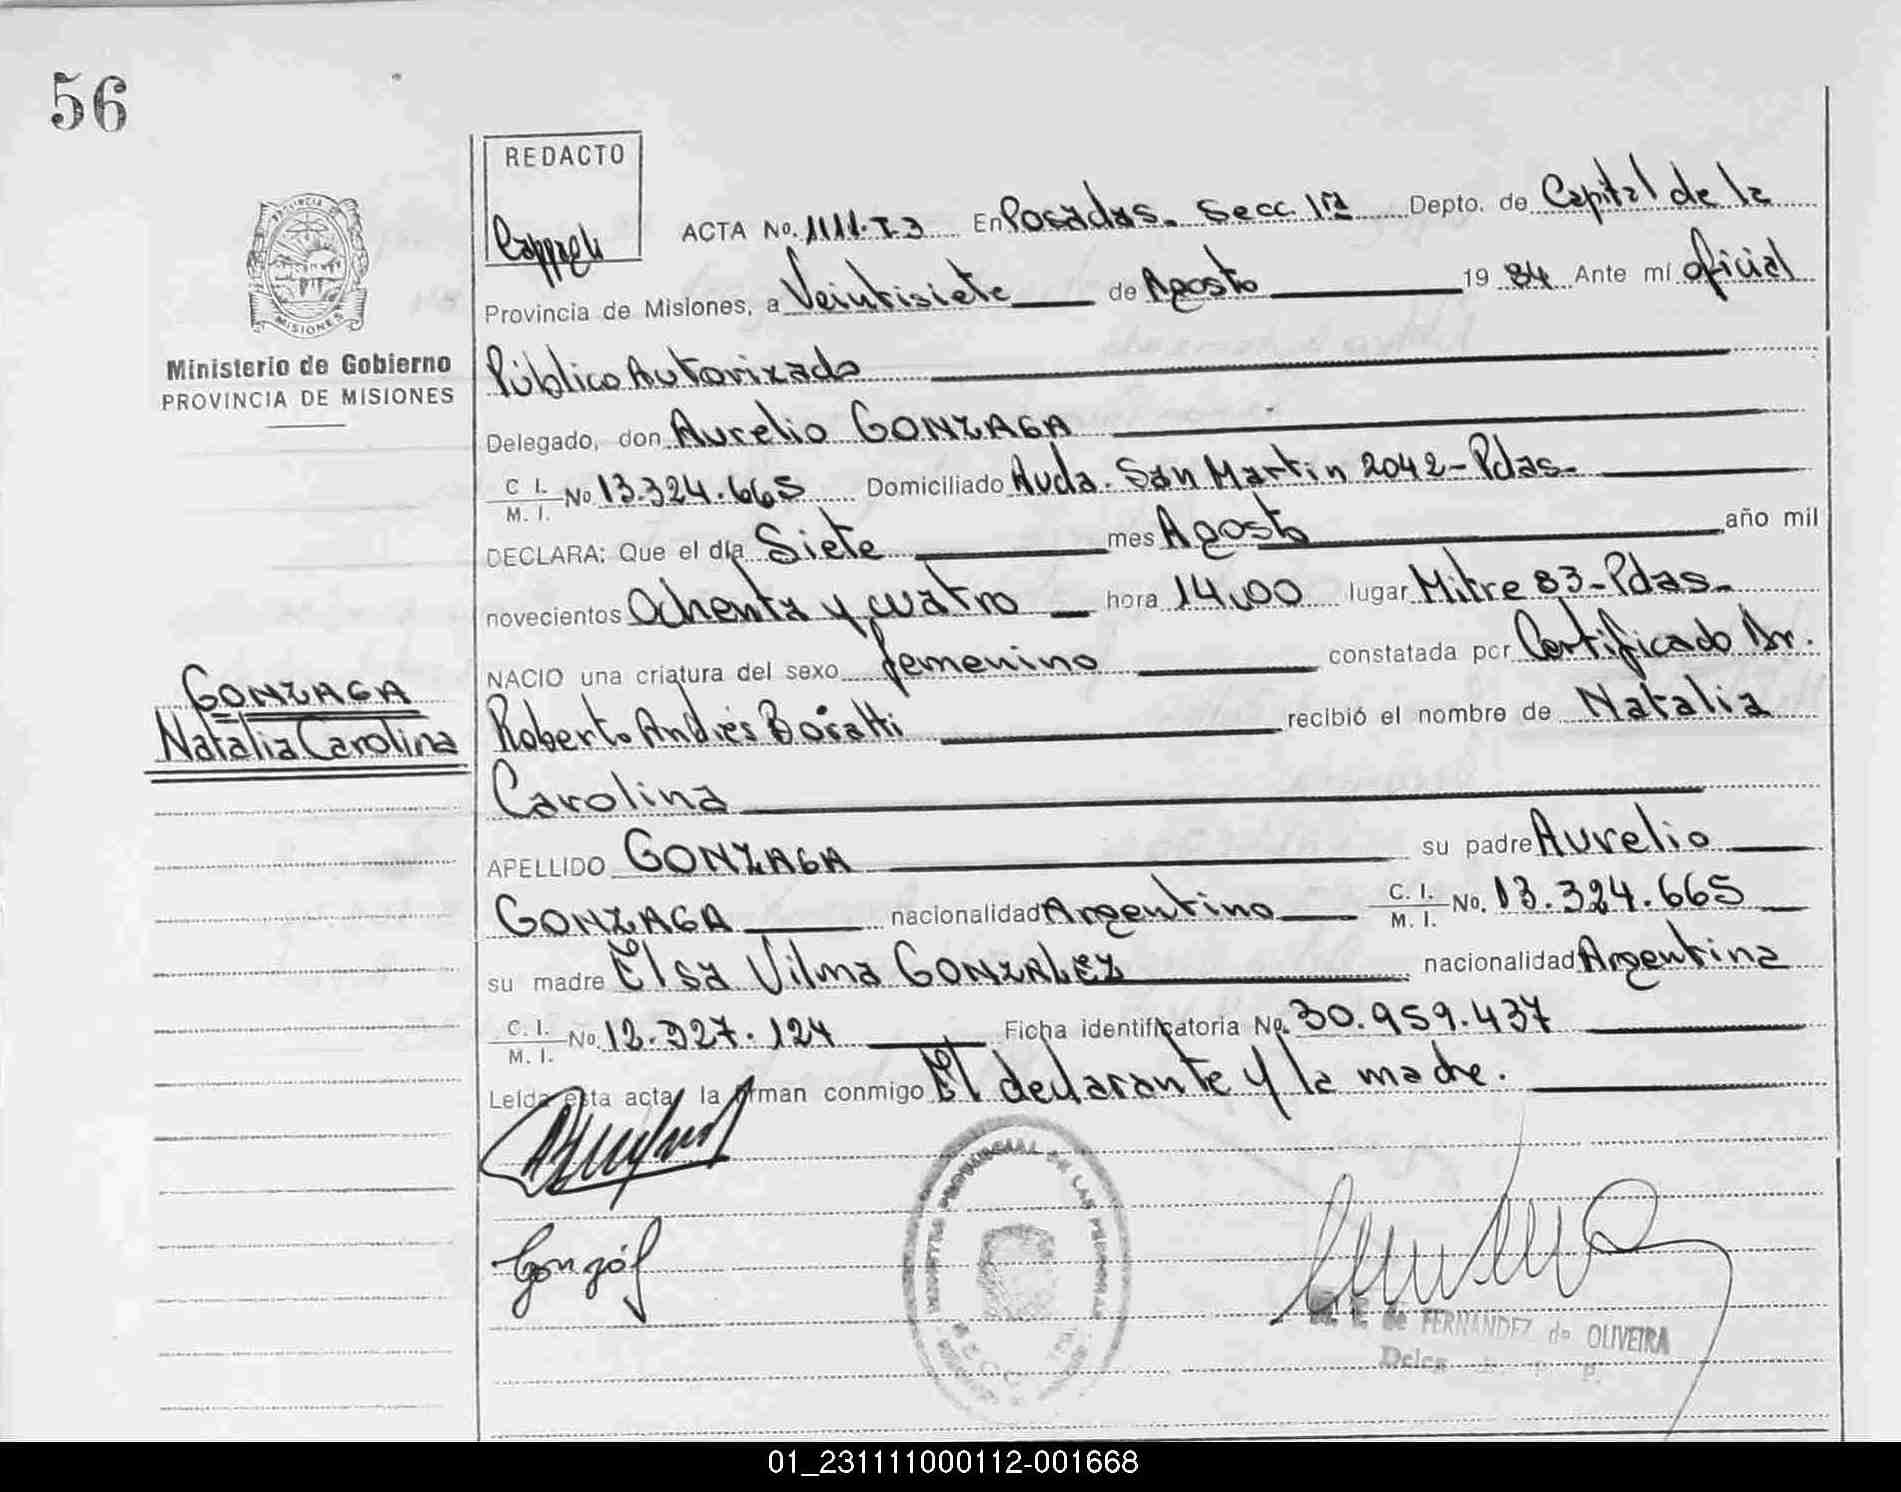 56
REDACTO
PROVINCIA DE
MISIONES
Ministerio de Gobierno
PROVINCIA DE MISIONES
ACTA No. 1111.T.3 En Posadas. Secc. 1ra Depto. de Capital de la
Provincia de Misiones, a Veintisiete de Agosto 19 84 Ante mí oficial
Público Autorizado
Delegado, don Aurelio GONZAGA
C I. M. I. No 13.324.665 Domiciliado Avda. San Martin 2042-Pdas-
DECLARA: Que el día Siete mes Agosto año mil
novecientos Ochenta y cuatro hora 14,00 lugar Mitre 83-Pdas-
NACIO una criatura del sexo femenino constatada por Certificado Dr.
GONZAGA
Natalia Carolina
Roberto Andrés Boratti recibió el nombre de Natalia
Carolina
APELLIDO GONZAGA su padre Aurelio
GONZAGA nacionalidad Argentino C. I. M. I. No. 13.324.665
su madre Elsa Vilma GONZALEZ nacionalidad Argentina
C. I. M. I. No. 12.327.124 Ficha identificatoria No. 30.959.437
Leída esta acta, la firman conmigo El declarante y la madre.
PROVINCIAL DE LAS PERSONAS
Gonzál
M. E. de FERNANDEZ de OLIVEIRA
01_231111000112-001668